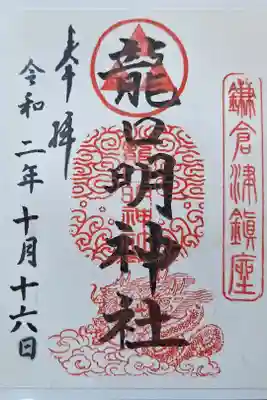 鎌倉津鎮座
龍口明神社
奉拝
令和二年十月十六日